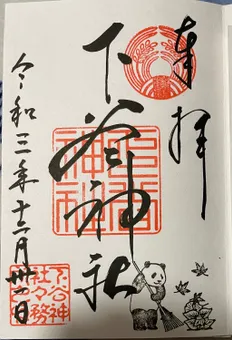 奉拝
下谷神社
令和三年十二月卅一日
下谷神社
下谷神社々務所之印